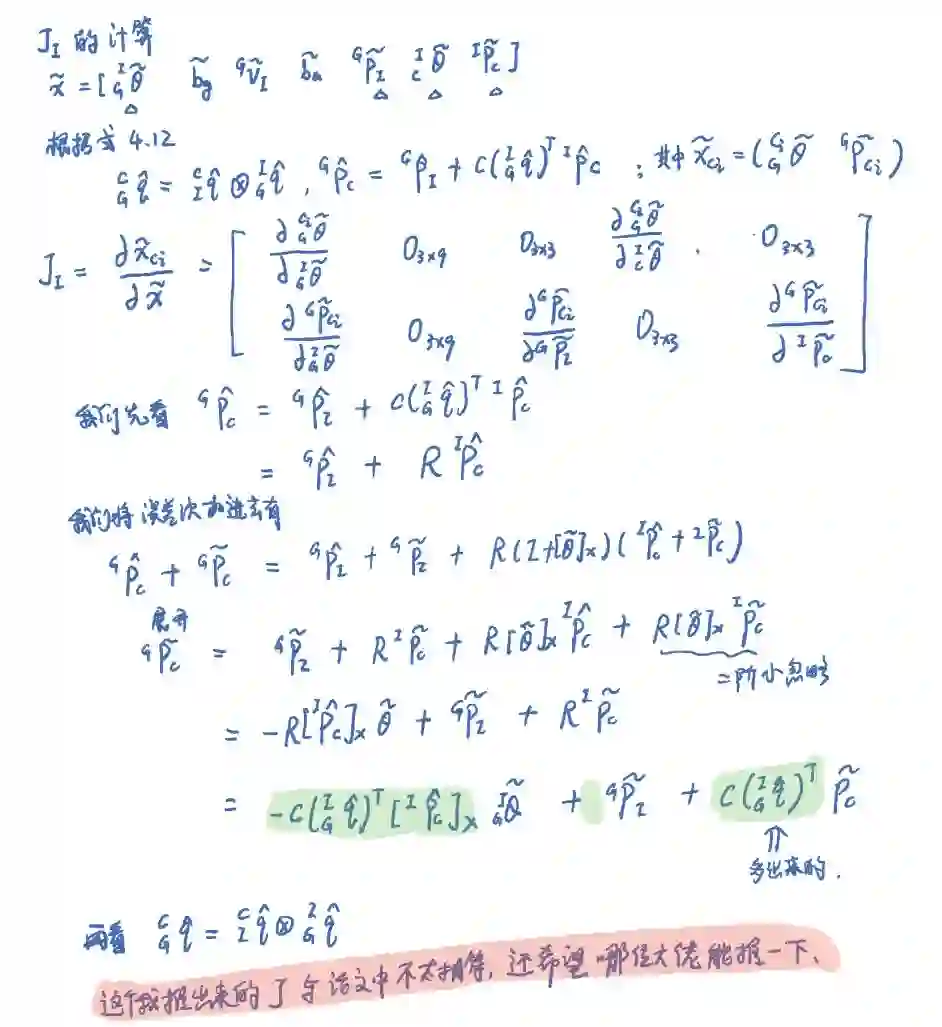 J_I 的计算
x̃ = [ᴵ_G θ̃ b̃_g ᴳṽ_I b̃_a ᴳp̃_I ᴵ_C θ̃ ᴵp̃_C]
△ △ △
根据式 4.12
ᶜ_G q̂ = ᶜ_I q̂ ⊗ ᴵ_G q̂ , ᴳp̂_C = ᴳp_I + C(ᴵ_G q̂)ᵀ ᴵp̂_C ; 其中 x̃_Ci = (ᶜⁱ_G θ̃ ᴳp̃_Ci)
J_I = ∂x̃_Ci / ∂x̃ = [ ∂ᶜⁱ_G θ̃ / ∂ᴵ_G θ̃ 0₃ₓ₉ 0₃ₓ₃ ∂ᶜⁱ_G θ̃ / ∂ᴵ_C θ̃ 0₃ₓ₃
∂ᴳp̃_Ci / ∂ᴵ_G θ̃ 0₃ₓ₉ ∂ᴳp̃_Ci / ∂ᴳp̃_I 0₃ₓ₃ ∂ᴳp̃_Ci / ∂ᴵp̃_C ]
我们先看 ᴳp̂_C = ᴳp̂_I + C(ᴵ_G q̂)ᵀ ᴵp̂_C
= ᴳp̂_I + R ᴵp̂_C
我们将误差次加进去有
ᴳp̂_C + ᴳp̃_C = ᴳp̂_I + ᴳp̃_I + R(I+[θ̃]ₓ)(ᴵp̂_C + ᴵp̃_C)
展开
ᴳp̃_C = ᴳp̃_I + R ᴵp̃_C + R[θ̃]ₓ ᴵp̂_C + R[θ̃]ₓ ᴵp̃_C
二阶小忽略
= -R[ᴵp̂_C]ₓ θ̃ + ᴳp̃_I + R ᴵp̃_C
= -C(ᴵ_G q̂)ᵀ [ᴵp̂_C]ₓ ᴵ_G θ̃ + ᴳp̃_I + C(ᴵ_G q̂)ᵀ p̃_C
⇑
多出来的.
再看 ᶜ_G q̂ = ᶜ_I q̂ ⊗ ᴵ_G q̂
这个我推出来的 J 与论文中不太相等, 还希望哪位大佬能推一下、